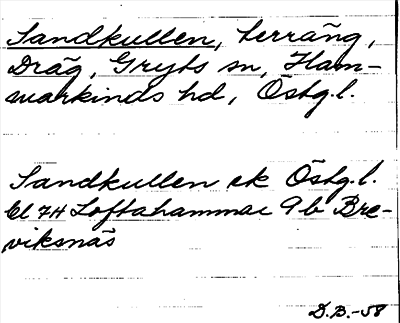 Sandkullen, terräng,
Dräg, Gryts sn, Ham-
markinds hd, Östg.l.
Sandkullen ek Östg.l.
bl 7H Loftahammar 9b Bre-
viksnäs
D.B.-58